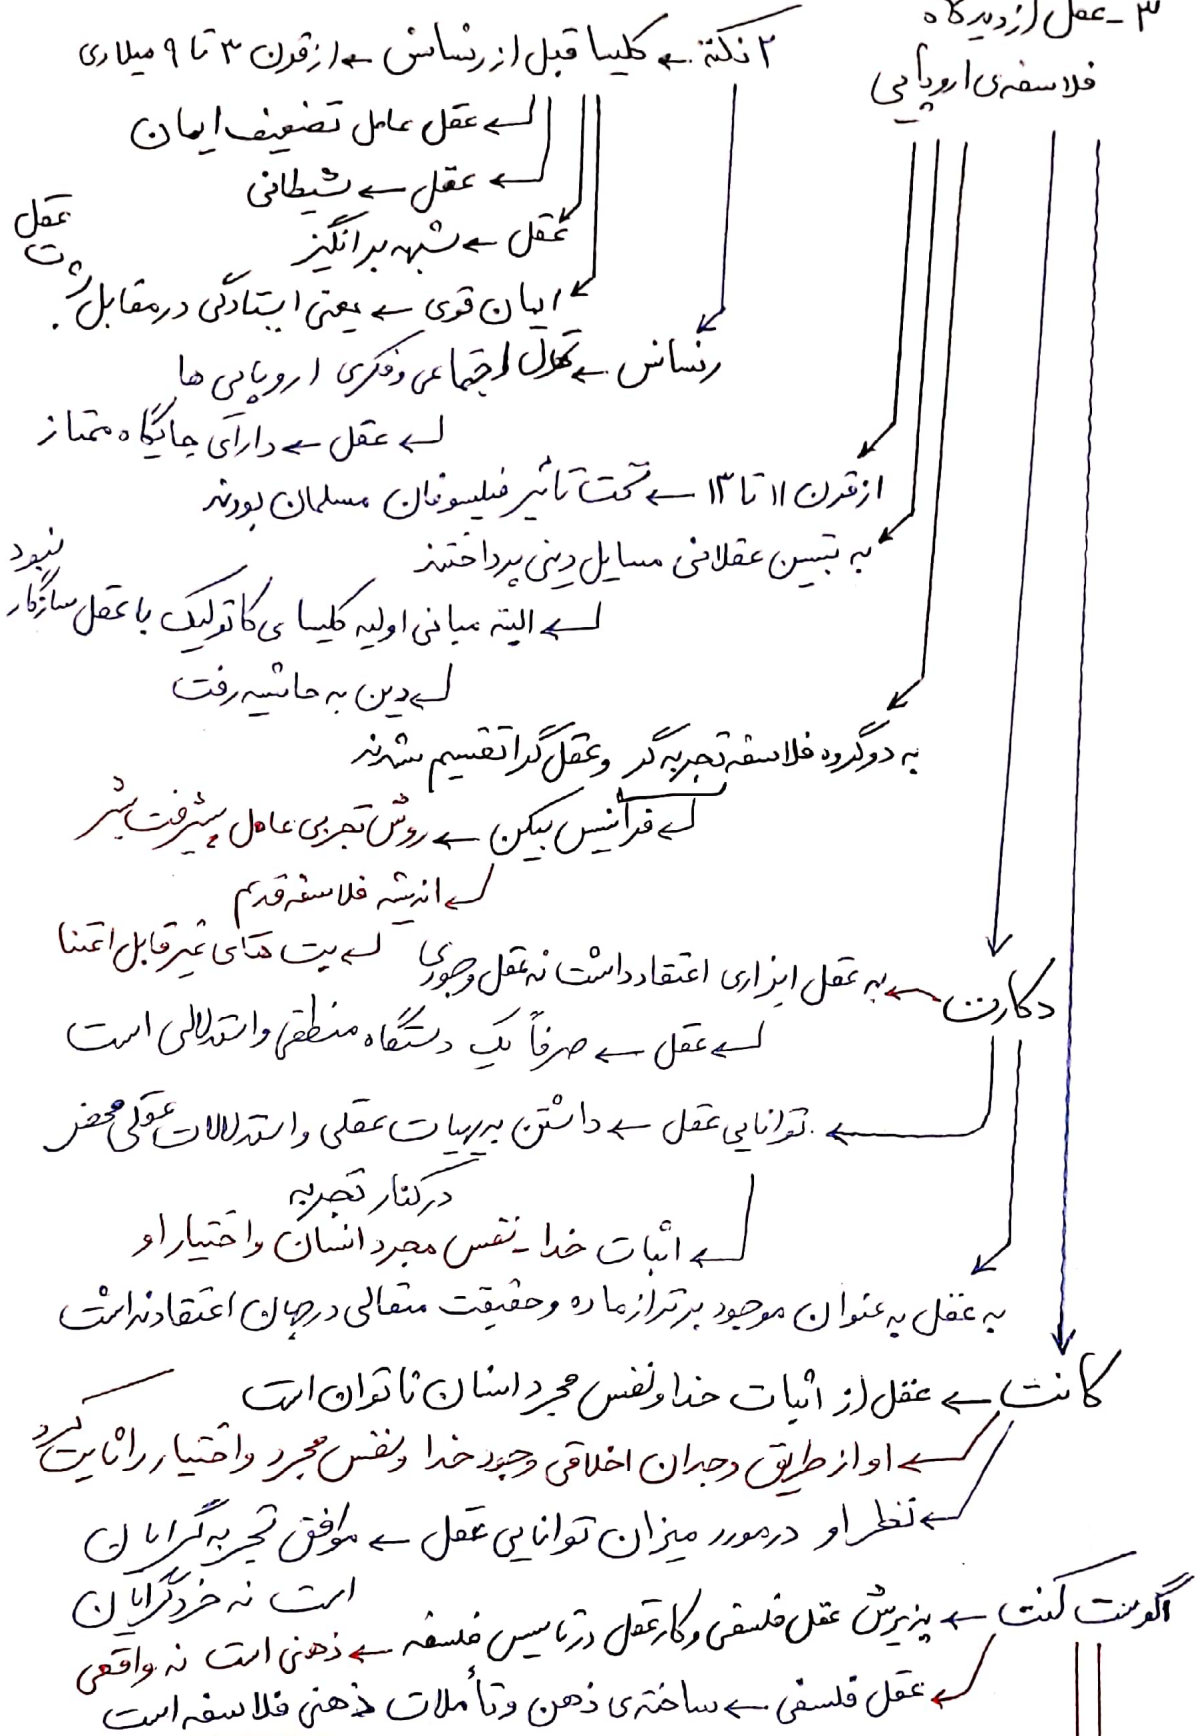 ۳ - عقل از دیدگاه
فلاسفه‌ی اروپایی
۲ نکته ← کلیسا قبل از رنسانس ← از قرن ۳ تا ۹ میلادی
← عقل عامل تضعیف ایمان
← عقل ← شیطانی
عقل ← شبهه برانگیز
ایمان قوی ← یعنی ایستادگی در مقابل
عقل است.
رنسانس ← تحول اجتماعی و فکری اروپایی ها
← عقل ← دارای جایگاه ممتاز
از قرن ۱۱ تا ۱۳ ← تحت تاثیر فیلسوفان مسلمان بودند
به تبیین عقلانی مسایل دینی پرداختند
← البته مبانی اولیه کلیسای کاتولیک با عقل سازگار
نبود
← دین به حاشیه رفت
به دو گروه فلاسفه تجربه گر و عقل گرا تقسیم شدند
← فرانسیس بیکن ← روش تجربی عامل پیشرفت بشر
← اندیشه فلاسفه قدیم
← بت های غیر قابل اعتنا
دکارت ← به عقل ابزاری اعتقاد داشت نه عقل وجودی
← عقل ← صرفاً یک دستگاه منطقی و استدلالی است
← توانایی عقل ← داشتن بدیهیات عقلی و استدلالات عقلی محض
در کنار تجربه
← اثبات خدا - نفس مجرد انسان و اختیار او
به عقل به عنوان موجود برتر از ماده و حقیقت متعالی در جهان اعتقاد نداشت
کانت ← عقل از اثبات خدا و نفس مجرد انسان ناتوان است
← او از طریق وجدان اخلاقی وجود خدا و نفس مجرد و اختیار را ثابت کرد
← نظر او در مورد میزان توانایی عقل ← موافق تجربه گرایان
است نه خردگرایان
اگوست کنت ← پذیرش عقل فلسفی و کار عقل در تاسیس فلسفه ← ذهنی است نه واقعی
← عقل فلسفی ← ساخته‌ی ذهن و تأملات ذهنی فلاسفه است